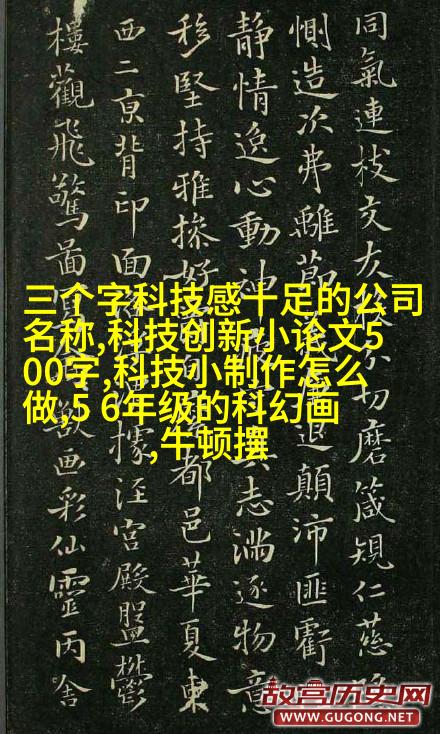 同氣連枝交友分切磨箴規仁慈隱
惻造次弗離節退顛沛匪虧
靜情逸心動神真志滿逐物意
移堅持雅操好都邑華夏東
西二京背邙面據涇宮殿盤鬱
樓觀飛驚圖獸畫彩仙靈丙舍
三个字科技感十足的公司
名称,科技创新小论文5
00字,科技小制作怎么
做,5 6年级的科幻画
,牛顿撰
故宫历史网
WWW.GUGONG.NET